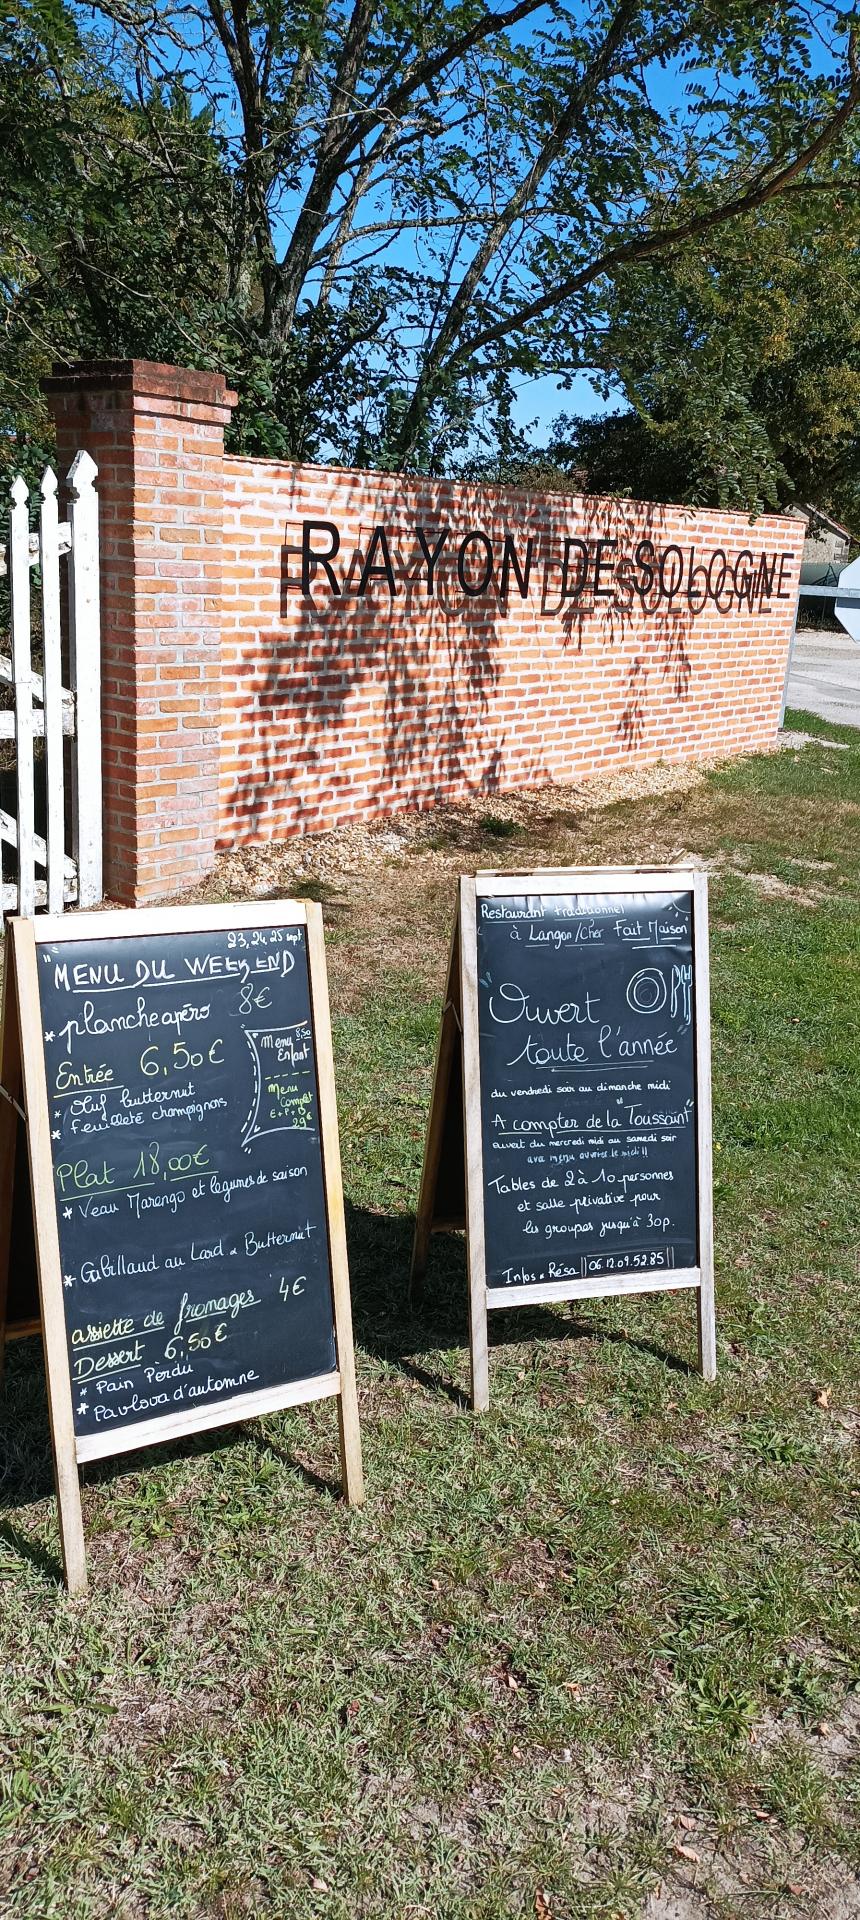 RAYON DE SOLOGNE
23, 24, 25 sept
"MENU DU WEEK END
* planche apéro 8€
Entrée 6,50€
* Œuf butternut
* Feuilleté champignons
Menu 8,50
Enfant
Menu
Complet
E+P+D
29€
Plat 18,00€
* Veau Marengo et legumes de saison
* Gabillaud au Lard & Butternut
assiette de fromages 4€
Dessert 6,50€
* Pain Perdu
* Pavlova d'automne
Restaurant traditionnel
à Langon/Cher Fait Maison
Ouvert
toute l'année
du vendredi soir au dimanche midi
A compter de la "Toussaint"
ouvert du mercredi midi au samedi soir
Tables de 2 à 10 personnes
et salle privative pour
les groupes jusqu'à 30p.
Infos & Résa 06.12.09.52.85